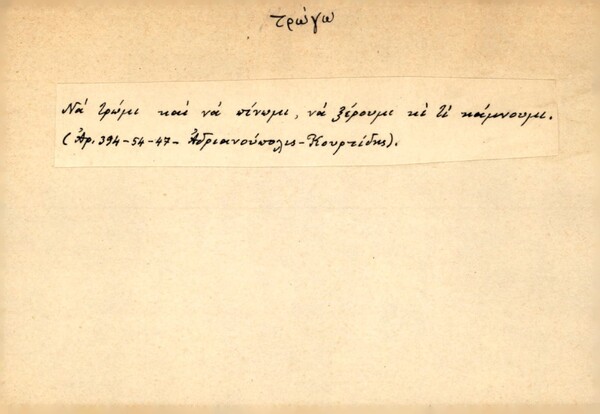 τρώγω
Νά τρώμι καί νά πίνωμι, νά ξέρουμε κὶ τί κάμνουμι.
(Ἀρ. 394-54-47- Ἀδριανούπολις-Κουρτίδης).